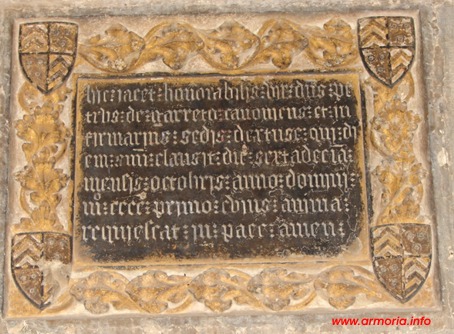 hic : jacet : honorabilis : vir : dns : pe
trus : de : garreto : canonicus : et : in
firmarius : sedis : dertuse : qui : di
em : suu : clausit : die : sexta decia
mensis : octobris : anno : domini :
mº : cccc : primo : cuius : anima :
requiescat : in : pace : amen :
www.armoria.info